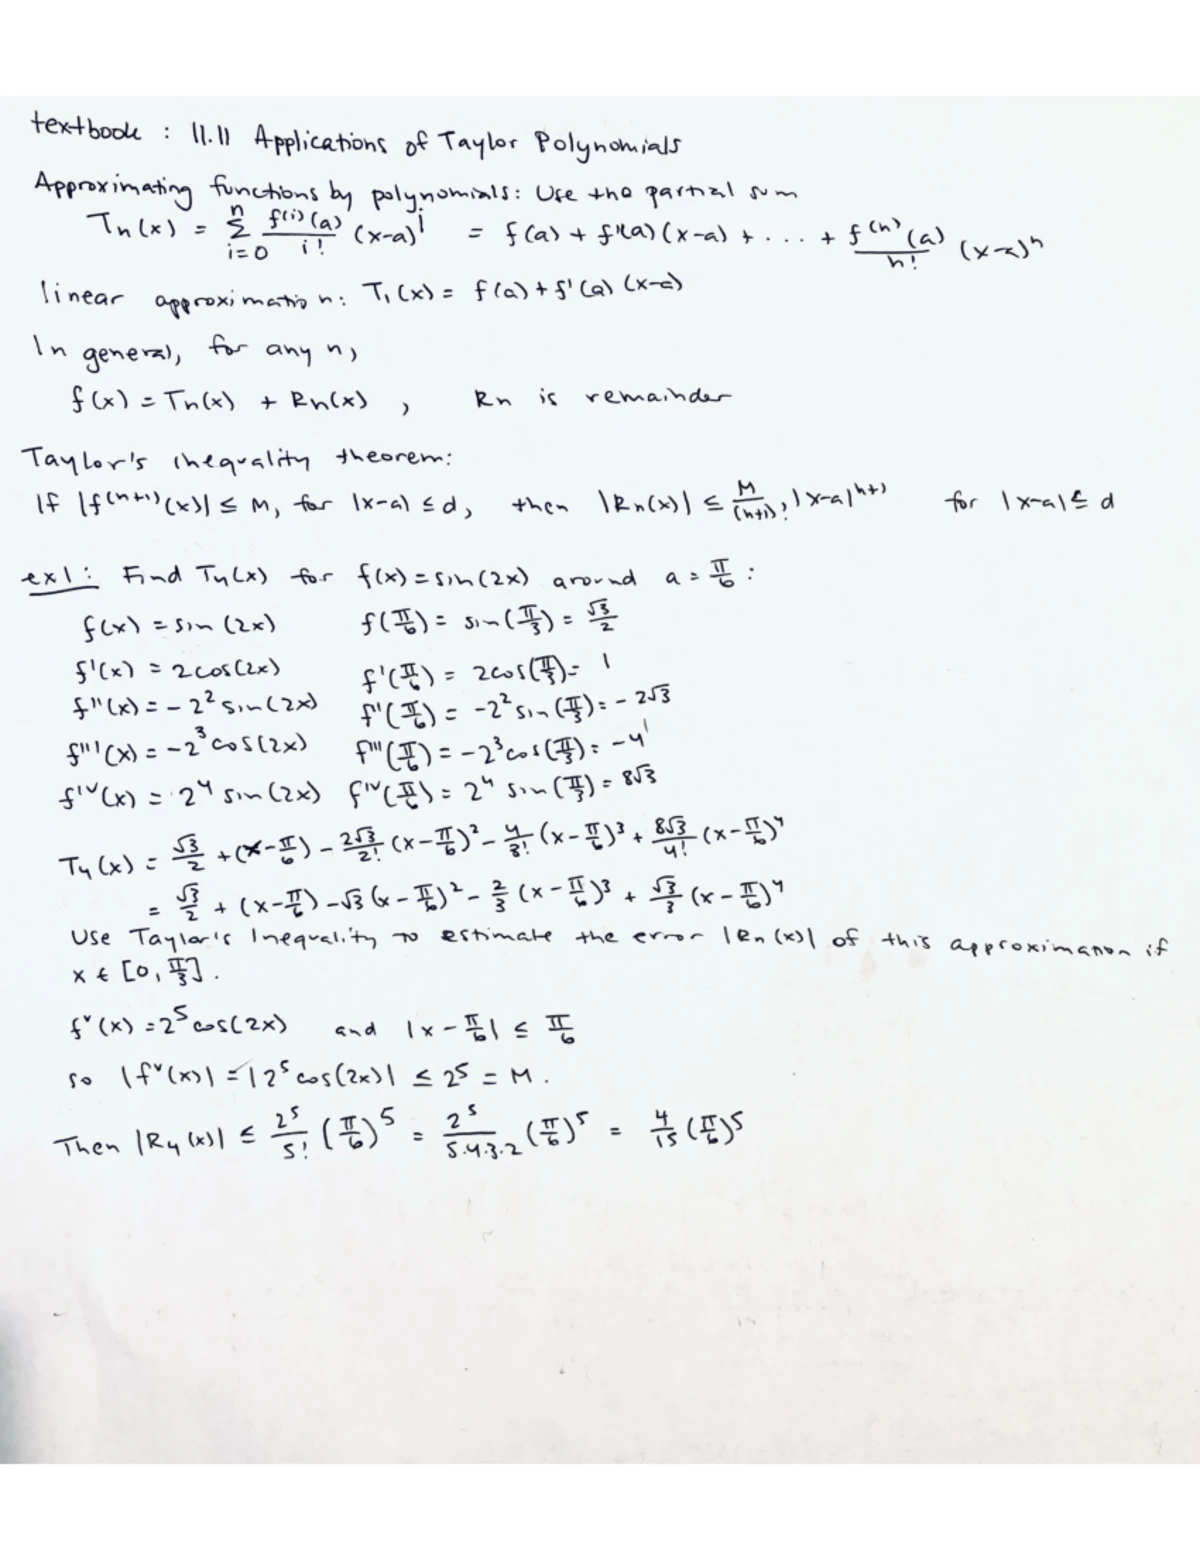 textbook : 11.11 Applications of Taylor Polynomials
Approximating functions by polynomials: Use the partial sum
Tn(x) = Σ_{i=0}^{n} f(i)(a)/i! (x-a)^i = f(a) + f'(a)(x-a) + . . . + f^(n)(a)/n! (x-a)^n
linear approximation: T₁(x) = f(a) + f'(a) (x-a)
In general, for any n,
f(x) = Tn(x) + Rn(x) , Rn is remainder
Taylor's inequality theorem:
If |f^(n+1)(x)| ≤ M, for |x-a| ≤ d, then |Rn(x)| ≤ M/(n+1)! |x-a|^(n+1) for |x-a| ≤ d
ex1: Find T₄(x) for f(x) = sin(2x) around a = π/6 :
f(x) = sin (2x) f(π/6) = sin(π/3) = √3/2
f'(x) = 2cos(2x) f'(π/6) = 2cos(π/3) = 1
f''(x) = -2² sin(2x) f''(π/6) = -2² sin(π/3) = -2√3
f'''(x) = -2³cos(2x) f'''(π/6) = -2³cos(π/3) = -4
f^IV(x) = 2⁴ sin(2x) f^IV(π/6) = 2⁴ sin(π/3) = 8√3
T₄(x) = √3/2 + (x-π/6) - 2√3/2! (x-π/6)² - 4/3! (x-π/6)³ + 8√3/4! (x-π/6)⁴
= √3/2 + (x-π/6) - √3 (x-π/6)² - 2/3 (x-π/6)³ + √3/3 (x-π/6)⁴
Use Taylor's Inequality to estimate the error |Rn(x)| of this approximation if
x ∈ [0, π/3].
f^v(x) = 2⁵cos(2x) and |x-π/6| ≤ π/6
so |f^v(x)| = |2⁵cos(2x)| ≤ 2⁵ = M.
Then |R₄(x)| ≤ 2⁵/5! (π/6)⁵ = 2⁵/5.4.3.2 (π/6)⁵ = 4/15 (π/6)⁵